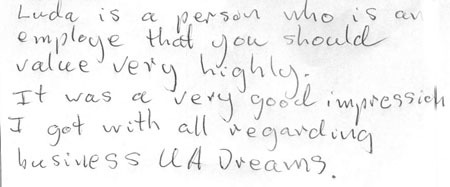 Luda is a person who is an
employe that you should
value very highly.
It was a very good impression
I got with all regarding
business UA Dreams.